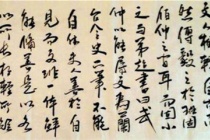 文人相輕自古而
然傅毅之於班固
伯仲之間耳而固小
之与弟超書曰武
仲以能属文為蘭
台令史下筆不能
自休夫人善於自
見而文非一体鮮
能備善是以各
以所長相輕所